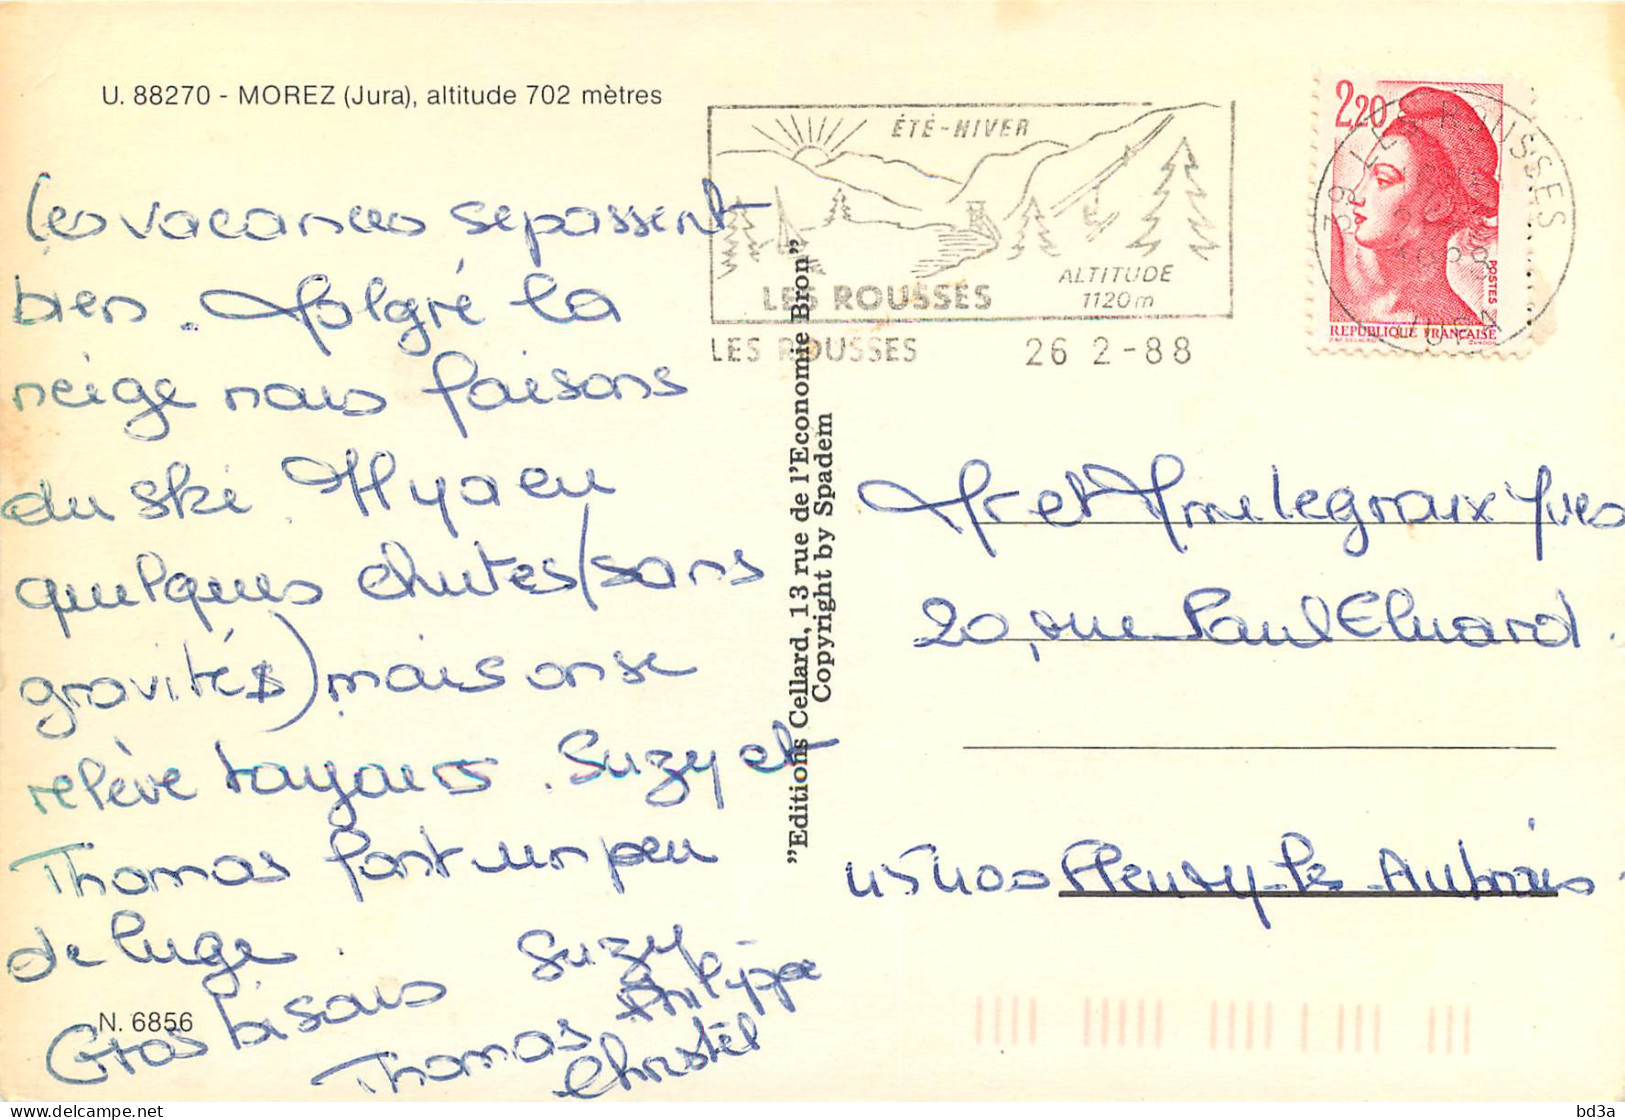 U. 88270 - MOREZ (Jura), altitude 702 mètres
Les vacances se passent
bien. Malgré la
neige nous faisons
du ski. Il y a eu
quelques chutes (sans
gravités) mais on se
relève toujours. Suzy et
Thomas font un peu
de luge.
Gros bisous Suzy
Philippe
Thomas
Christèl
N. 6856
"Editions Cellard, 13 rue de l'Economie Bron"
Copyright by Spadem
ÉTÉ-HIVER
ALTITUDE
1120m
LES ROUSSES
LES ROUSSES 26 2-88
2,20
POSTES
REPUBLIQUE FRANÇAISE
39 LES ROUSSES
JURA
Mr et Mme Legroux Yves
20, rue Paul Eluard.
45400 Fleury-les-Aubrais.
delcampe.net
bd3a